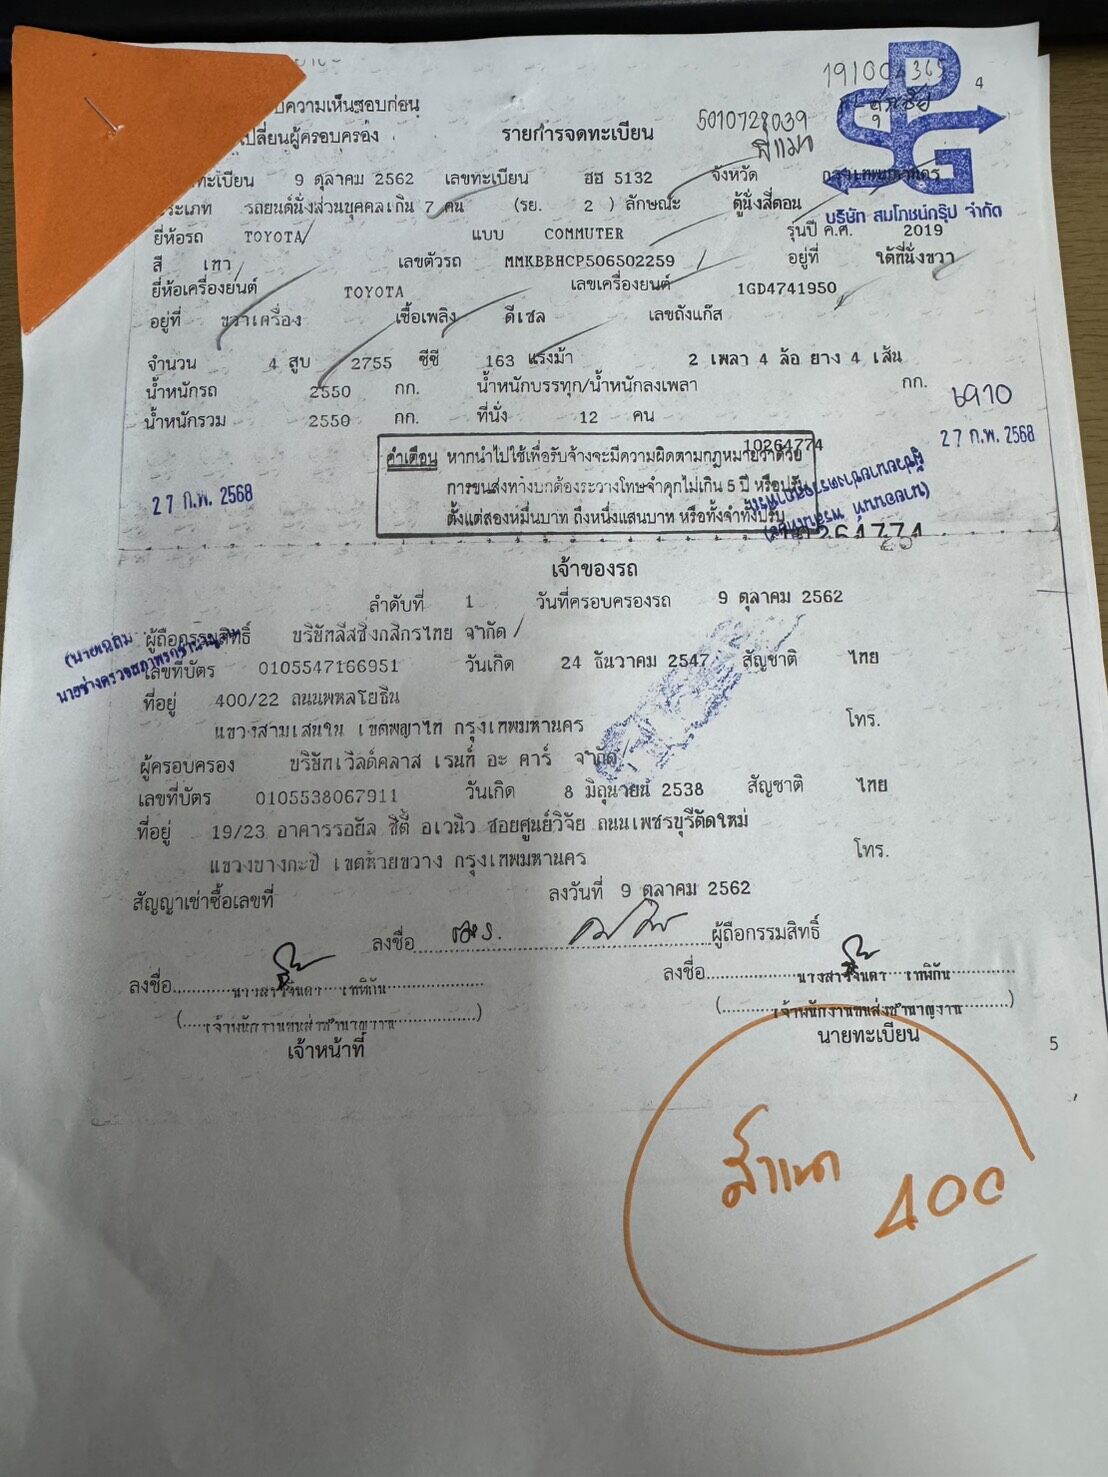 191004365
4
ความเห็นชอบก่อน
เปลี่ยนผู้ครอบครอง
รายการจดทะเบียน
5010728039
ทะเบียน 9 ตุลาคม 2562 เลขทะเบียน ฮฮ 5132 จังหวัด กรุงเทพมหานคร
ประเภท รถยนต์นั่งส่วนบุคคลเกิน 7 คน (รย. 2 ) ลักษณะ ตู้นั่งสี่ตอน
บริษัท สมโภชน์กรุ๊ป จำกัด
ยี่ห้อรถ TOYOTA แบบ COMMUTER รุ่นปี ค.ศ. 2019
สี เทา เลขตัวรถ MMKBBHCP506502259 อยู่ที่ ใต้ที่นั่งขวา
ยี่ห้อเครื่องยนต์ TOYOTA เลขเครื่องยนต์ 1GD4741950
อยู่ที่ ขวาเครื่อง เชื้อเพลิง ดีเซล เลขถังแก๊ส
จำนวน 4 สูบ 2755 ซีซี 163 แรงม้า 2 เพลา 4 ล้อ ยาง 4 เส้น
น้ำหนักรถ 2550 กก. น้ำหนักบรรทุก/น้ำหนักลงเพลา กก.
น้ำหนักรวม 2550 กก. ที่นั่ง 12 คน
10264774
27 ก.พ. 2568
คำเตือน หากนำไปใช้เพื่อรับจ้างจะมีความผิดตามกฎหมายว่าด้วย
การขนส่งทางบกต้องระวางโทษจำคุกไม่เกิน 5 ปี หรือปรับ
ตั้งแต่สองหมื่นบาท ถึงหนึ่งแสนบาท หรือทั้งจำทั้งปรับ
27 ก.พ. 2568
10264774
เจ้าของรถ
ลำดับที่ 1 วันที่ครอบครองรถ 9 ตุลาคม 2562
ผู้ถือกรรมสิทธิ์ บริษัทลีสซิ่งกสิกรไทย จำกัด
เลขที่บัตร 0105547166951 วันเกิด 24 ธันวาคม 2547 สัญชาติ ไทย
ที่อยู่ 400/22 ถนนพหลโยธิน
แขวงสามเสนใน เขตพญาไท กรุงเทพมหานคร โทร.
ผู้ครอบครอง บริษัทเวิลด์คลาส เรนท์ อะ คาร์ จำกัด
เลขที่บัตร 0105538067911 วันเกิด 8 มิถุนายน 2538 สัญชาติ ไทย
ที่อยู่ 19/23 อาคารรอยัล ซิตี้ อเวนิว ซอยศูนย์วิจัย ถนนเพชรบุรีตัดใหม่
แขวงบางกะปิ เขตห้วยขวาง กรุงเทพมหานคร โทร.
สัญญาเช่าซื้อเลขที่ ลงวันที่ 9 ตุลาคม 2562
ลงชื่อ ผู้ถือกรรมสิทธิ์
ลงชื่อ นางสาวจินดา เทพิกัน ลงชื่อ นางสาวจินดา เทพิกัน
(เจ้าพนักงานขนส่งชำนาญงาน) (เจ้าพนักงานขนส่งชำนาญงาน)
เจ้าหน้าที่ นายทะเบียน
5
สำเนา 400